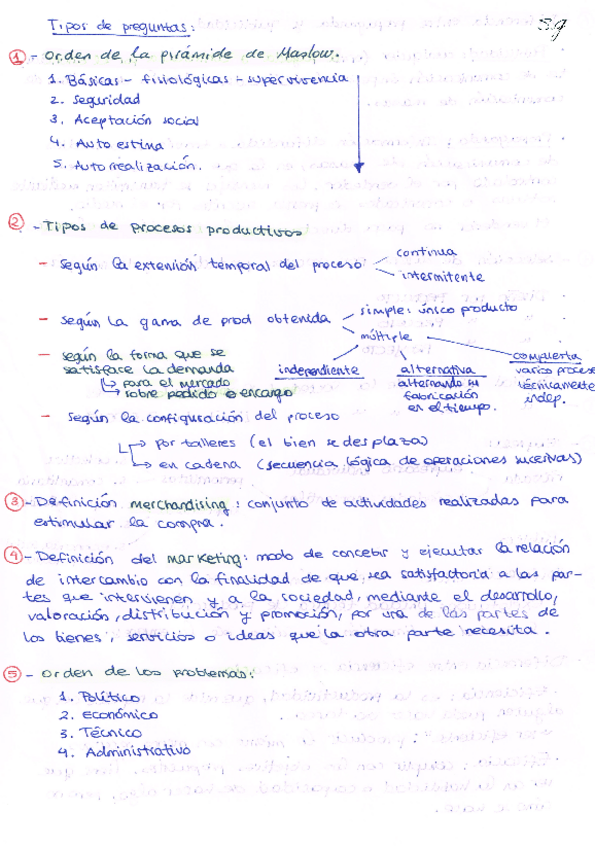 Tipos de preguntas:
1 - Orden de la pirámide de Maslow.
1. Básicas - fisiológicas - supervivencia
2. Seguridad
3. Aceptación social
4. Autoestima
5. Autorrealización.
2 - Tipos de procesos productivos
- Según la extensión temporal del proceso
continua
intermitente
- Según la gama de prod obtenida
simple: único producto
múltiple
independiente
alternativa
alternando su
fabricación
en el tiempo.
compuesta
varios procesos
técnicamente
indep.
- Según la forma que se
satisface la demanda
↳ para el mercado
↳ sobre pedido o encargo
- Según la configuración del proceso
↳ por talleres (el bien se desplaza)
↳ en cadena (secuencia lógica de operaciones sucesivas)
3 - Definición merchandising: conjunto de actividades realizadas para
estimular la compra.
4 - Definición del marketing: modo de concebir y ejecutar la relación
de intercambio con la finalidad de que sea satisfactoria a las par-
tes que intervienen y a la sociedad, mediante el desarrollo,
valoración, distribución y promoción, por una de las partes de
los bienes, servicios o ideas que la otra parte necesita.
5 - Orden de los problemas:
1. Político
2. Económico
3. Técnico
4. Administrativo